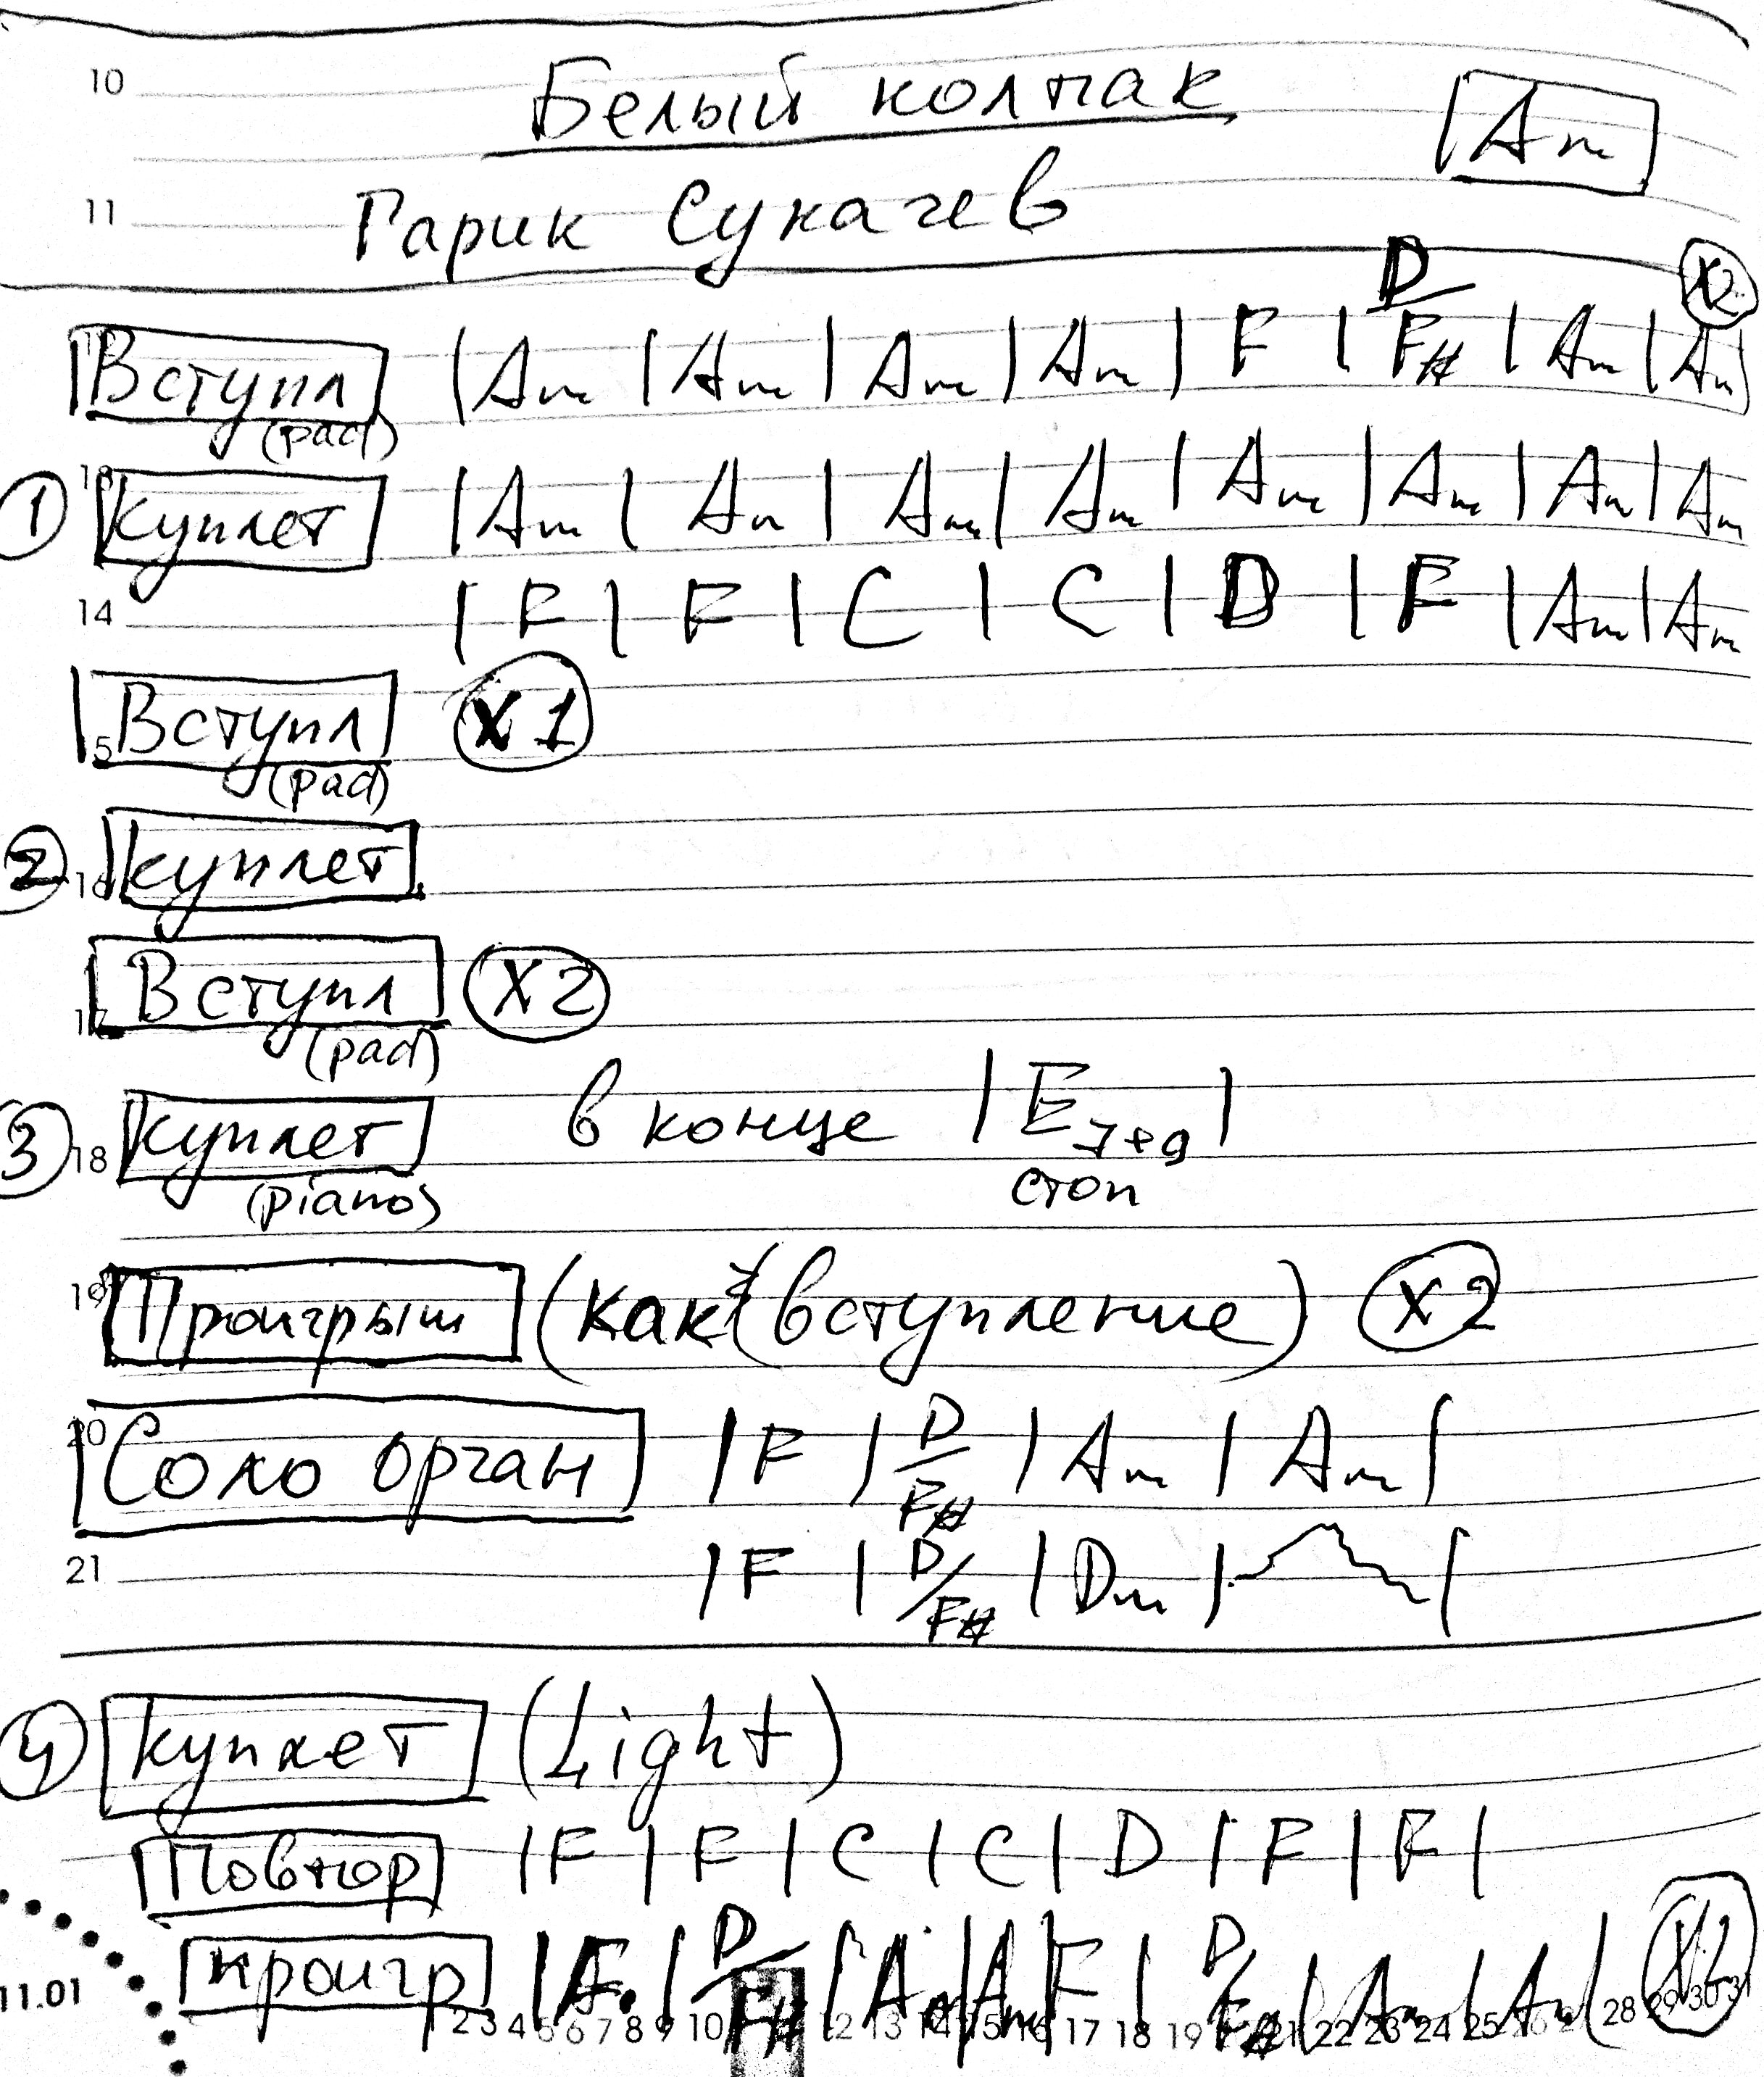 10 Белый колпак |Am|
11 Гарик Сукачев
Вступл |Am|Am|Am|Am|F|D/F#|Am|Am| X2
(pad)
1 Куплет |Am|Am|Am|Am|Am|Am|Am|Am
14 |F|F|C|C|D|F|Am|Am
Вступл X1
(pad)
2 Куплет
Вступл X2
(pad)
3 18 Куплет в конце |E7+9|
(piano) стоп
19 Проигрыш (как вступление) X2
20 Соло орган |F|D/F#|Am|Am|
21 |F|D/F#|Dm| |
4 Куплет (Light)
Повтор |F|F|C|C|D|F|F|
проигр |F|D/F#|Am|Am|F|D/F#|Am|Am|
11.01 1 2 3 4 5 6 7 8 9 10 12 13 14 15 16 17 18 19 21 22 23 24 25 26 28 29 30 31